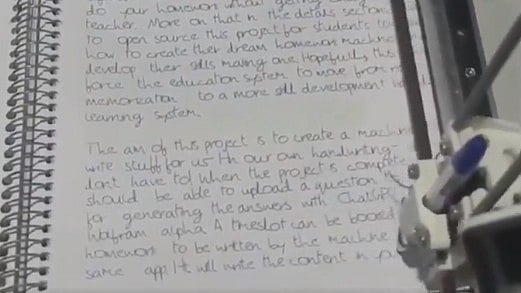 do your homework without getting
teacher. More on that in the details section
to open source this project for students
how to create their dream homework machine
develop their skills making one. Hopefully, this
force the education system to move from
memorization to a more skill development
learning system.
The aim of this project is to create a machine
write stuff for us in our own handwriting
dont have to! When the project is complete
should be able to upload a question
for generating the answers with ChatGPT
Wolfram alpha. A timeslot can be booked
homework to be written by the machine
same app. It will write the content in